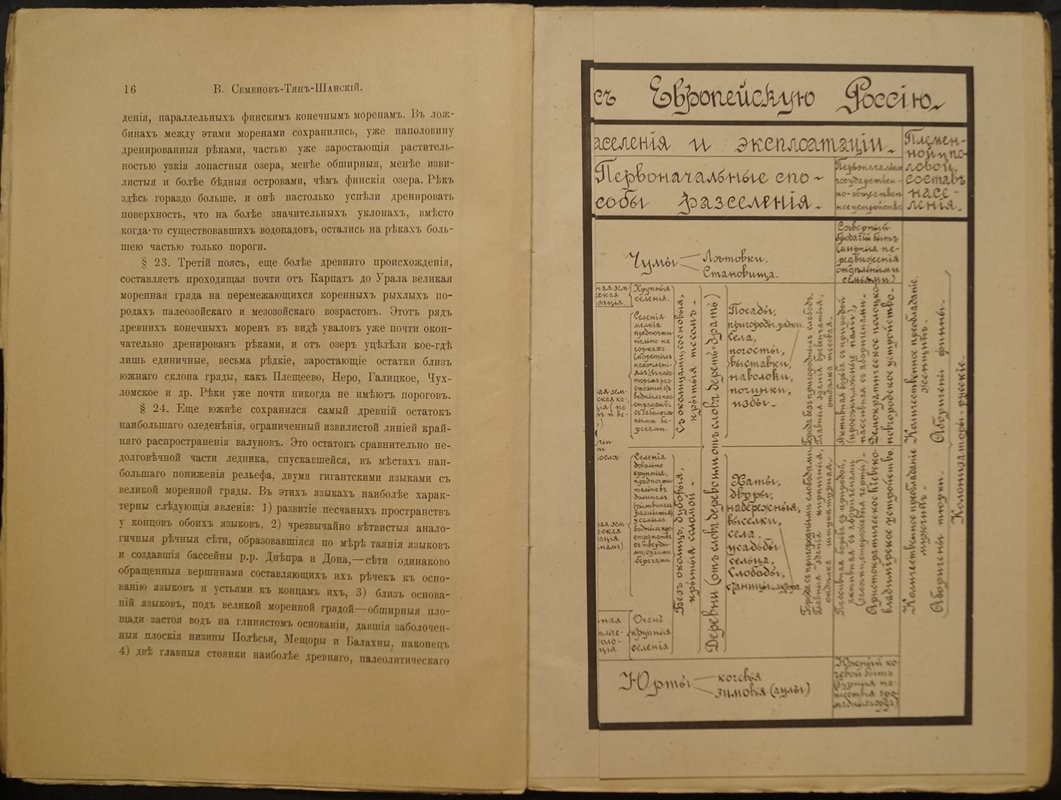 16
В. Семеновъ-Тян-Шанскій.
денія, параллельныхъ финскимъ конечнымъ моренамъ. Въ лож-
бинахъ между этими моренами сохранились, уже наполовину
дренированныя рѣками, частью уже заростающія раститель-
ностью узкія лопастныя озера, менѣе обширныя, менѣе изви-
листыя и болѣе бѣдныя островами, чѣмъ финскія озера. Рѣкъ
здѣсь гораздо больше, и онѣ настолько успѣли дренировать
поверхность, что на болѣе значительныхъ уклонахъ, вмѣсто
когда-то существовавшихъ водопадовъ, остались на рѣкахъ боль-
шею частью только пороги.
§ 23. Третій поясъ, еще болѣе древняго происхожденія,
составляетъ проходящая почти отъ Карпатъ до Урала великая
моренная гряда на перемежающихся коренныхъ рыхлыхъ по-
родахъ палеозойскаго и мезозойскаго возрастовъ. Этотъ рядъ
древнихъ конечныхъ моренъ въ видѣ уваловъ уже почти окон-
чательно дренированъ рѣками, и отъ озеръ уцѣлѣли кое-гдѣ
лишь единичные, весьма рѣдкіе, заростающіе остатки близъ
южнаго склона гряды, какъ Плещеево, Неро, Галицкое, Чух-
ломское и др. Рѣки уже почти никогда не имѣютъ пороговъ.
§ 24. Еще южнѣе сохранился самый древній остатокъ
наибольшаго оледенѣнія, ограниченный извилистой линіей край-
няго распространенія валуновъ. Это остатокъ сравнительно не-
долговѣчной части ледника, спускавшейся, въ мѣстахъ наи-
большаго пониженія рельефа, двумя гигантскими языками съ
великой моренной гряды. Въ этихъ языкахъ наиболѣе харак-
терны слѣдующія явленія: 1) развитіе песчаныхъ пространствъ
у концовъ обоихъ языковъ, 2) чрезвычайно вѣтвистыя анало-
гичныя рѣчныя сѣти, образовавшіяся по мѣрѣ таянія языковъ
и создавшія бассейны р.р. Днѣпра и Дона,—сѣти одинаково
обращенныя вершинами составляющихъ ихъ рѣчекъ къ осно-
ванію языковъ и устьями къ концамъ ихъ, 3) близъ основа-
ній языковъ, подъ великой моренной грядой—обширныя пло-
щади застоя водъ на глинистомъ основаніи, давшія заболочен-
ныя плоскія низины Полѣсья, Мещоры и Балахны, наконецъ
4) двѣ главныя стоянки наиболѣе древняго, палеолитическаго
съ Европейскую Россію.
аселенія и эксплоатаціи.
Племен-
ной и по-
ловой
составъ
насе-
ленія.
Первоначальные спо-
собы разселенія.
Чумы
Лѣтовки.
Становища.
Сѣверный
бродячій бытъ
Крупныя
селенія.
Селенія
мелкія
Съ околицами, сосновыя,
крытыя тесомъ.
Деревни (отъ слова деревня отъ слова береть-драть)
Посады,
пригороды, рядки,
села,
погосты,
выставки,
наволоки,
починки,
избы.
Демократическое полоцко-
новгородское устройство.
Количественное преобладаніе
женщинъ.
Аборигены финны.
Колонизаторы-русскіе.
Селенія
довольно
крупныя,
Безъ околицъ, дубовыя,
крытыя соломой.
Хаты,
дворы,
набережныя,
выселки,
села,
усадьбы
сельца,
слободы,
Аристократическое кіевско-
владимірское устройство.
Количественное преобладаніе
мужчинъ.
Аборигены тюрки.
Очень
крупныя
селенія
Юрты
кочевья
зимовья (аулы)